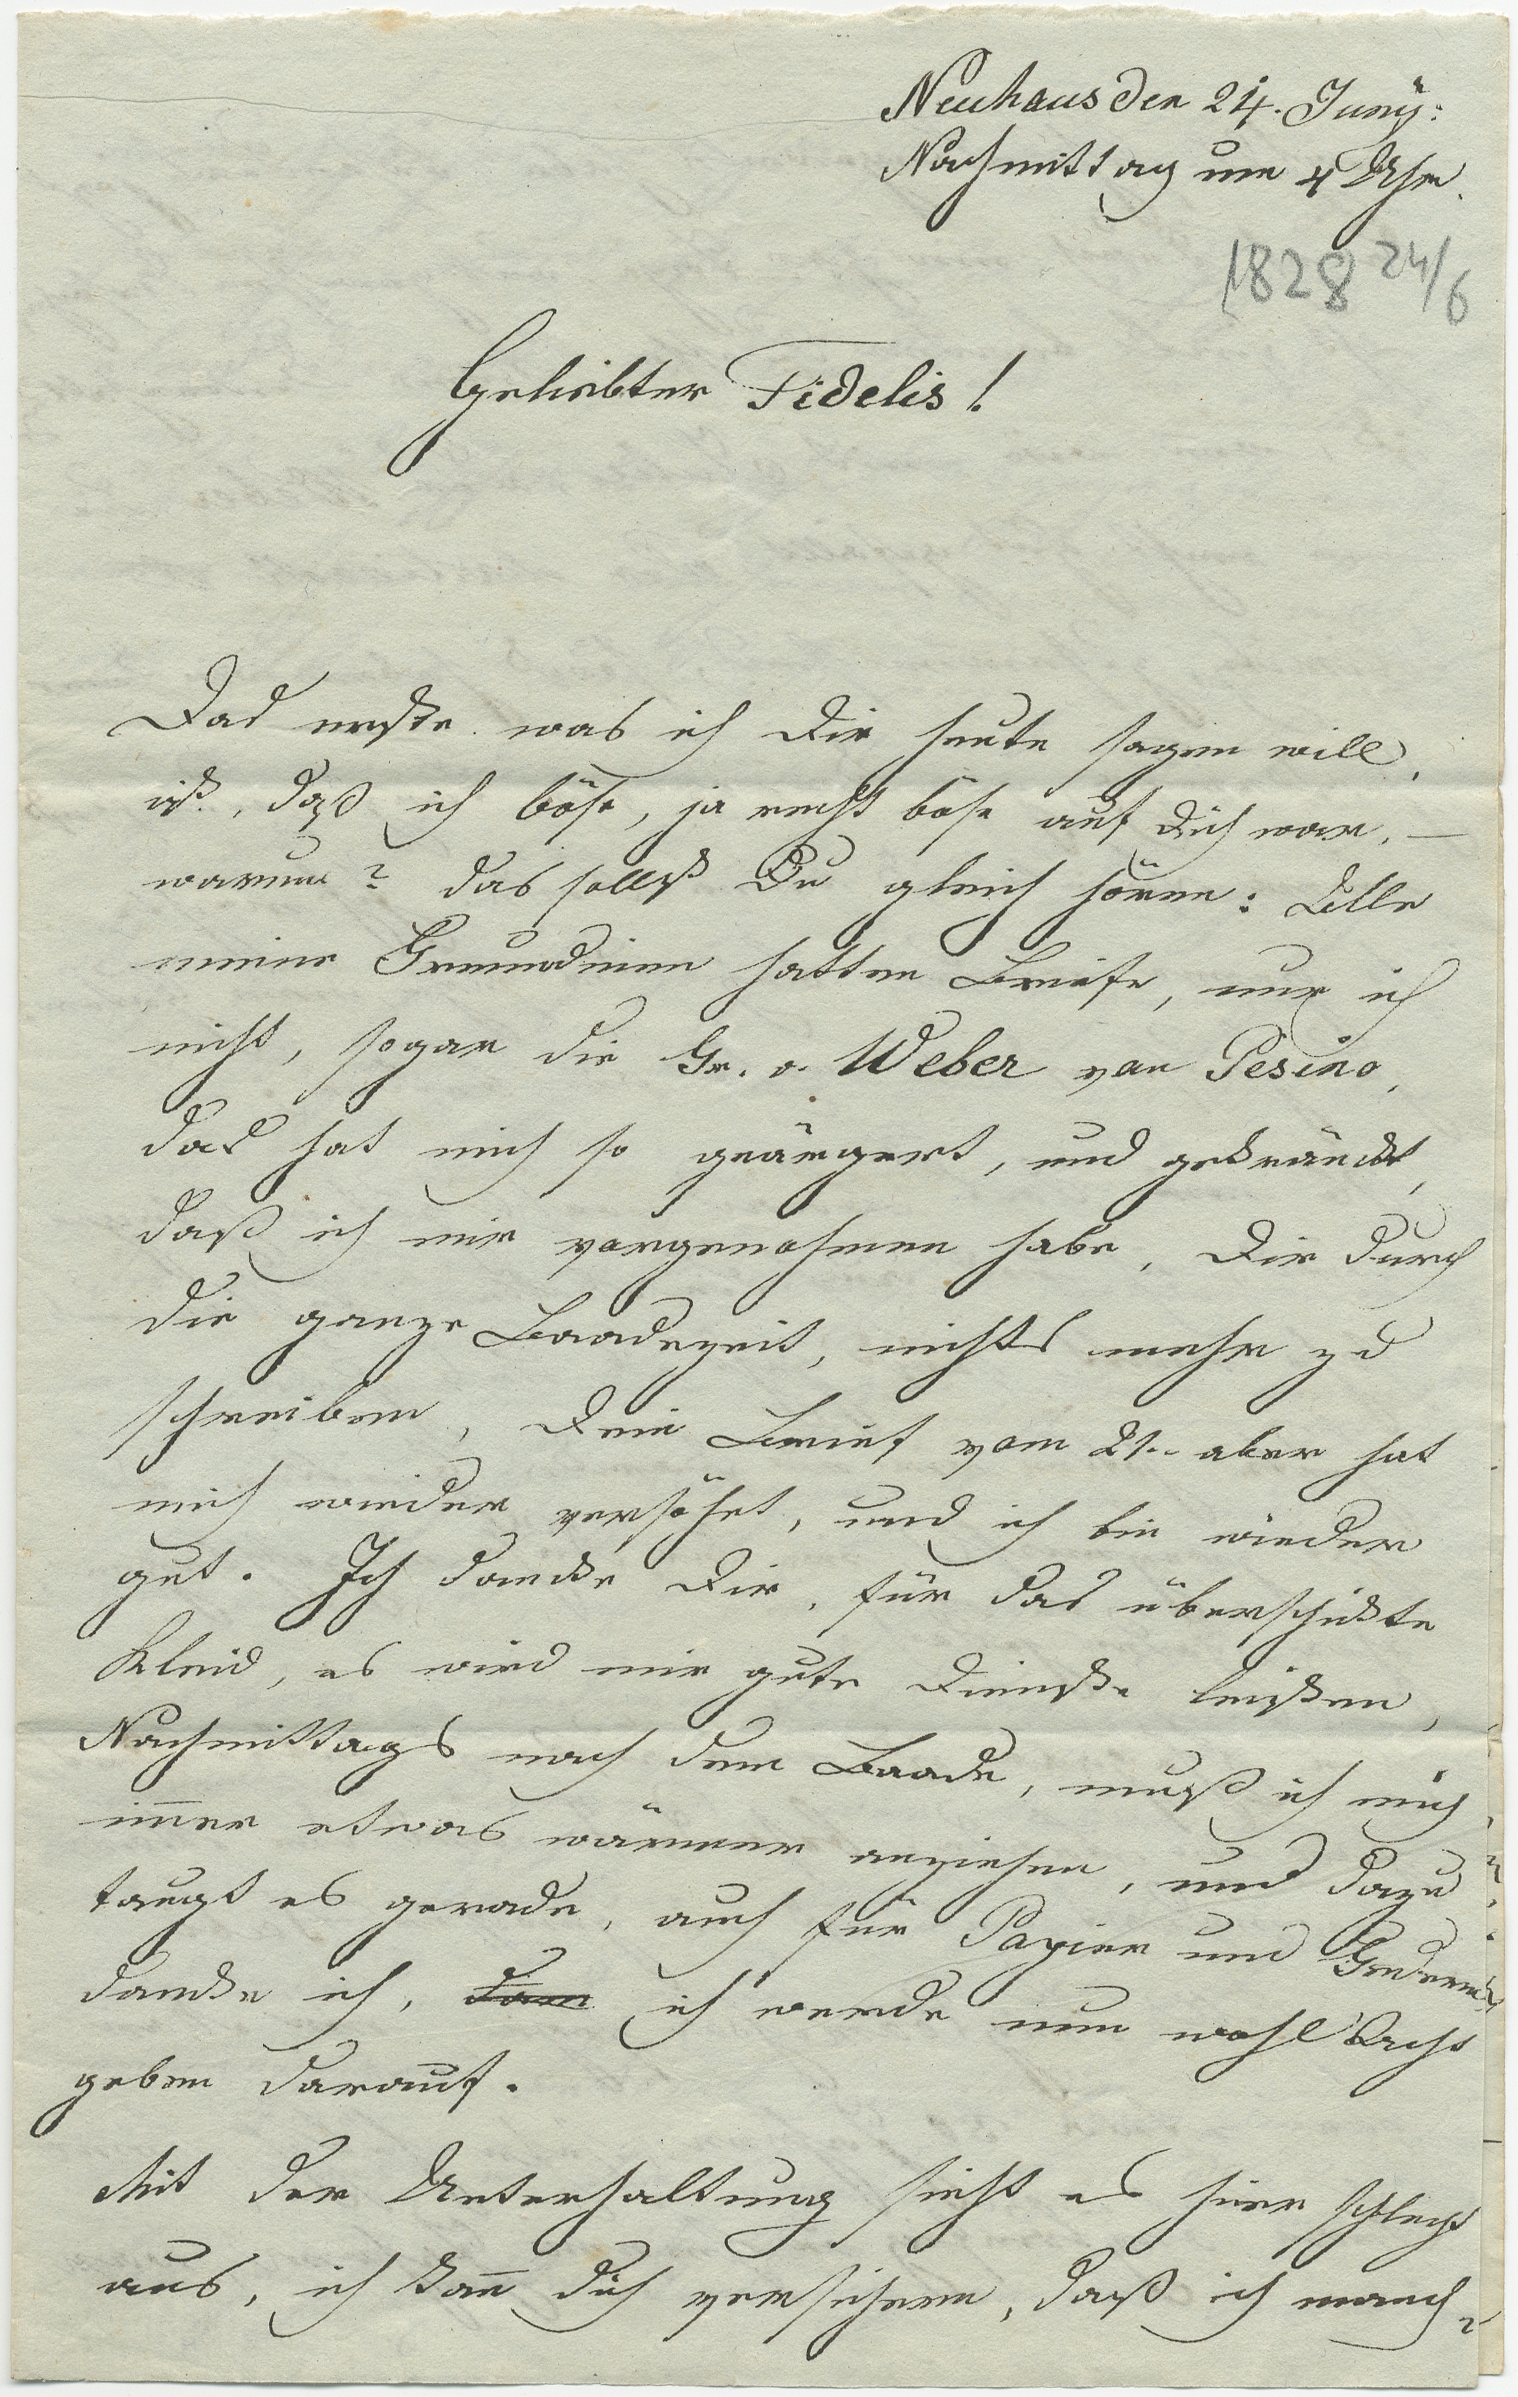 Neuhaus den 24. Juny:
Nachmittag um 4 Uhr.
1828 24/6
Geliebter Fidelis!
Das erste was ich Dir heute sagen will,
ist, daß ich böse, ja recht böse auf Dich war. —
warum? das sollst Du gleich hören: Alle
meine Freundinen hatten Briefe, nur ich
nicht, sogar die Gr. v. Weber von Pesino,
das hat mich so geärgert, und gekränckt,
daß ich mir vorgenohmen habe, Dir durch
die ganze Baadezeit, nichts mehr zu
schreiben, Dein Brief vom 21. aber hat
mich wieder versöhnt, und ich bin wieder
gut. Ich dancke Dir, für das überschickte
Kleid, es wird mir gute Dienste leisten,
Nachmittags nach dem Baade, muß ich mich
immer etwas wärmer anziehen, und dazu
taugt es gerade, auch für Papier und Federn
dancke ich, ich werde nun wohl Acht
geben darauf.
Mit der Unterhaltung sieht es hier schlecht
aus, ich kann dich versichern, daß ich manch-